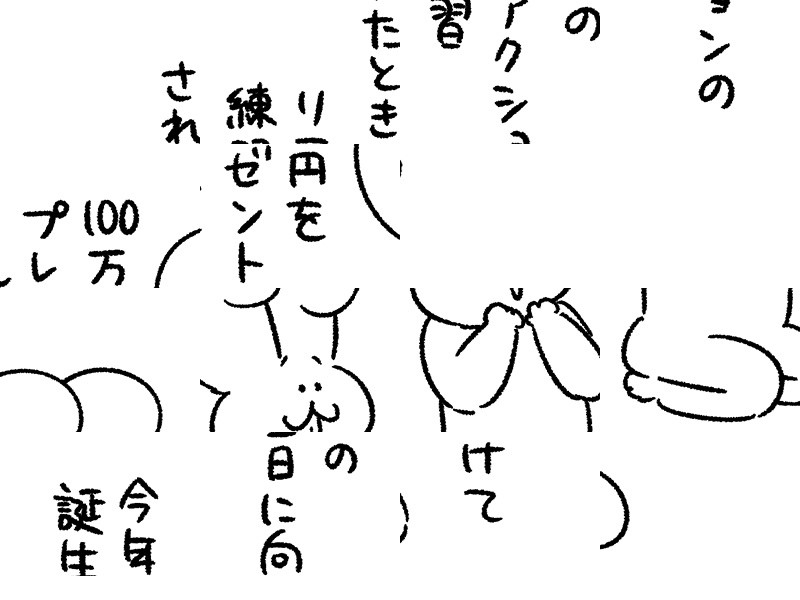 ョンの
の
アクショ
習
たとき
り
練
され
円を
ゼント
100万
プレ
けて
の
日に向
今年
誕生